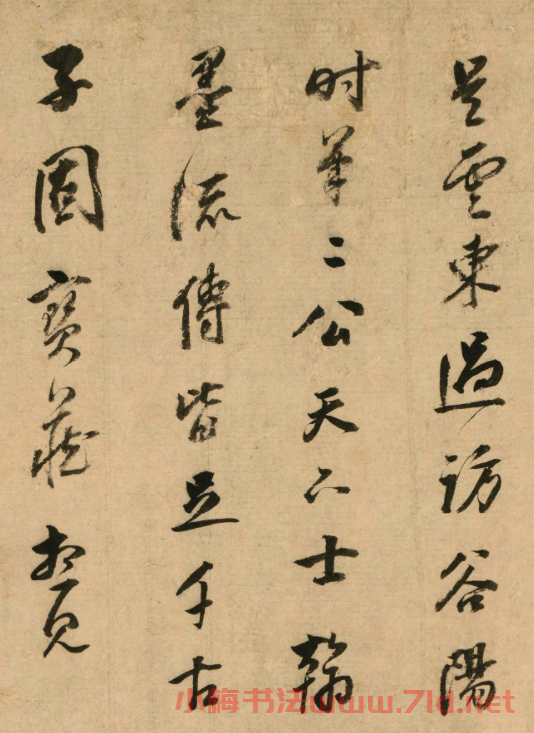 是雲東過訪谷陽
时筆二公天下士翰
墨流傳皆足千古
子固寶藏想見
小梅书法www.7ld.net